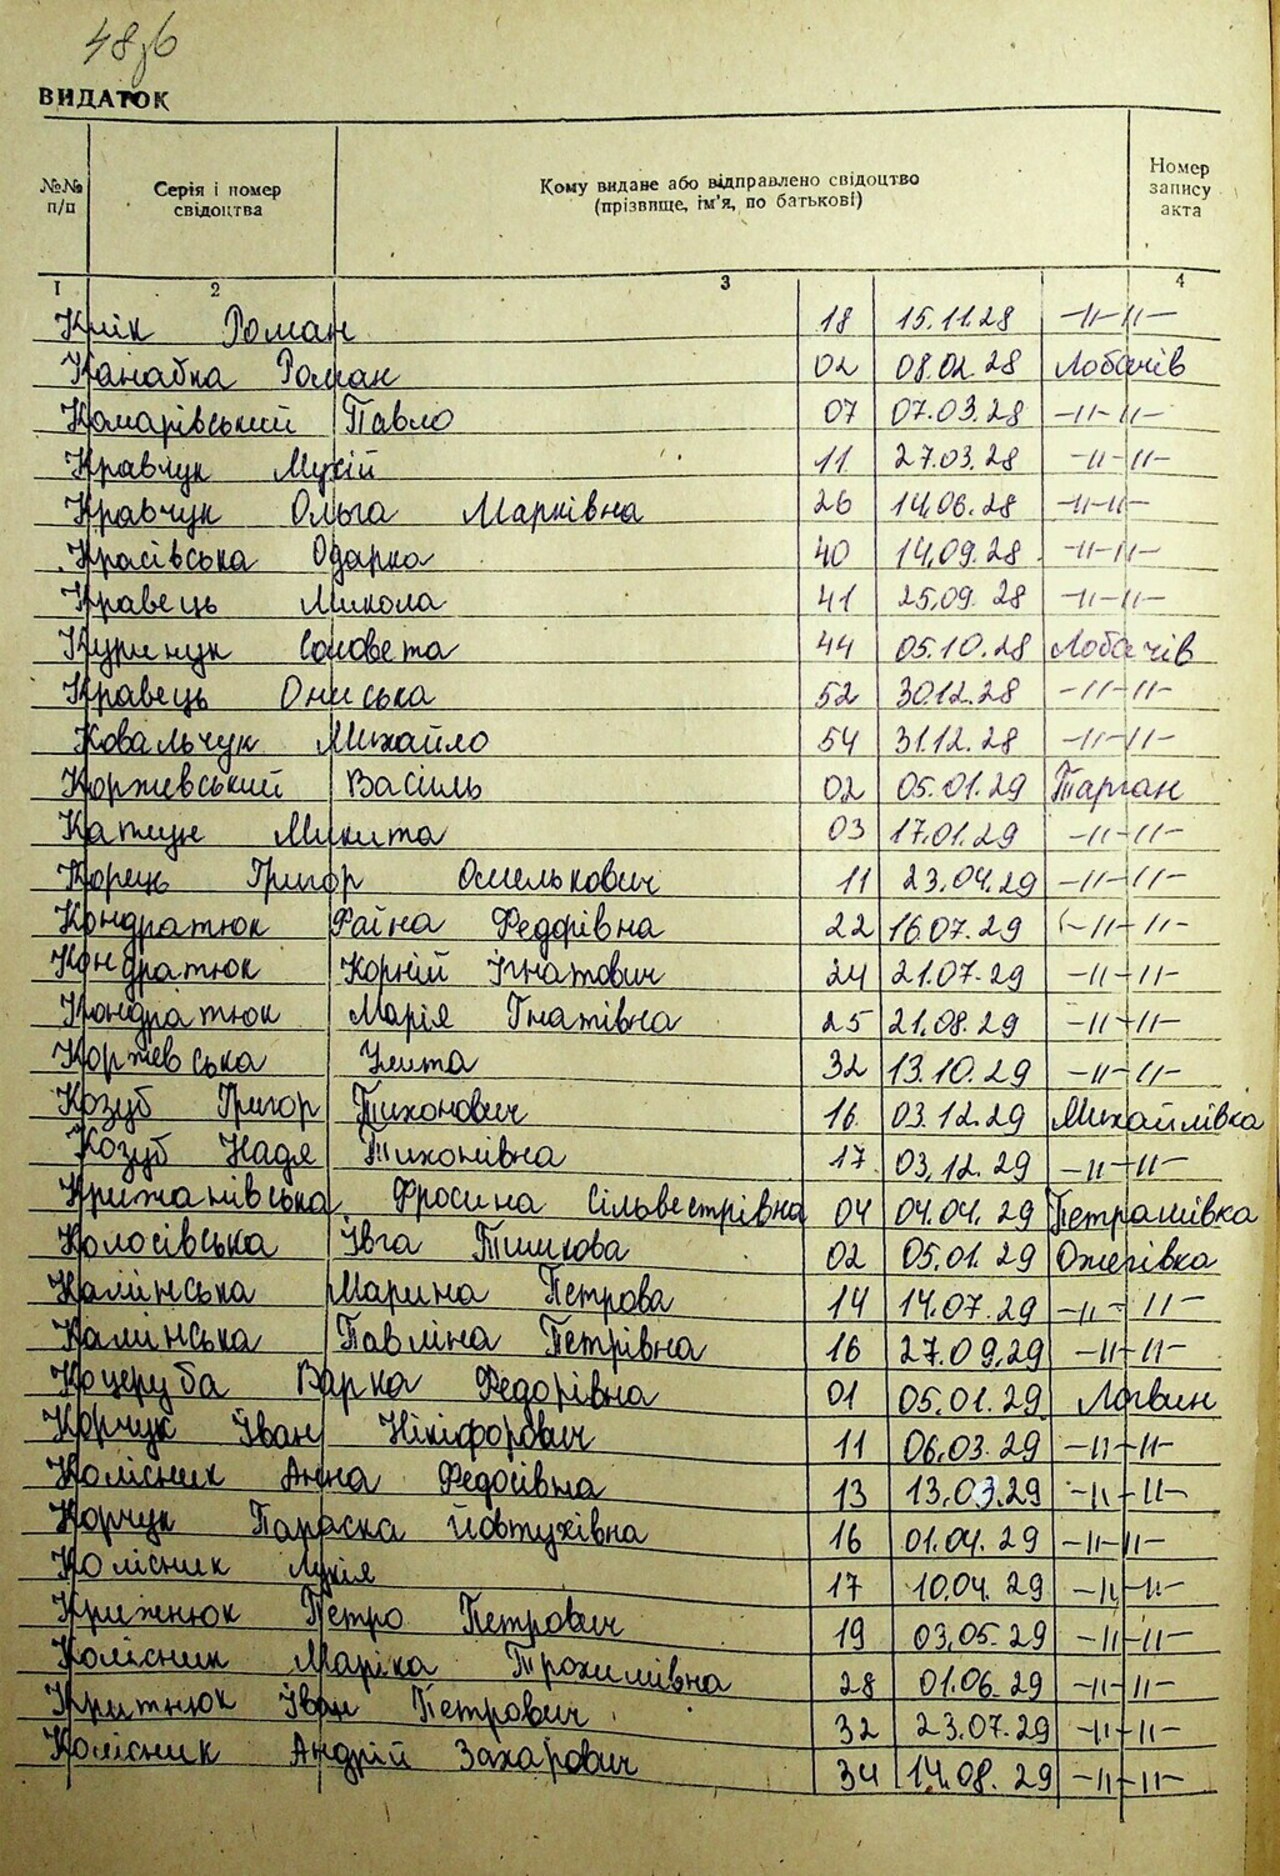 48зб
ВИДАТОК
№№ п/п
Серія і номер свідоцтва
Кому видане або відправлено свідоцтво (прізвище, ім'я, по батькові)
Номер запису акта
1 2 3 4
Роман 18 15.11.28 -//-//-
Канабка Роман 02 08.02.28 Лобачів
Комарівський Павло 07 07.03.28 -//-//-
Кравчук Мусій 11 27.03.28 -//-//-
Кравчук Ольга Марківна 26 14.06.28 -//-//-
Красівська Одарка 40 14.09.28 -//-//-
Кравець Микола 41 25.09.28 -//-//-
44 05.10.28 Лобачів
Кравець Ониська 52 30.12.28 -//-//-
Ковальчук Михайло 54 31.12.28 -//-//-
Коржевський Василь 02 05.01.29 Тарган
Микита 03 17.01.29 -//-//-
Корець Григор Омелькович 11 23.04.29 -//-//-
Кондратюк Раїна Федорівна 22 16.07.29 -//-//-
Кондратюк Корній Ігнатович 24 21.07.29 -//-//-
Кондратюк Марія Гнатівна 25 21.08.29 -//-//-
Коржевська 32 13.10.29 -//-//-
Козуб Григор Тихонович 16 03.12.29 Михайлівка
Козуб Надя Тихонівна 17 03.12.29 -//-//-
Крижанівська Фросина Сільвестрівна 04 04.04.29 Петрашівка
Колосівська Івга Тишкова 02 05.01.29 Ожегівка
Калінська Марина Петрова 14 14.07.29 -//-//-
Калінська Павліна Петрівна 16 27.09.29 -//-//-
Коцеруба Варка Федорівна 01 05.01.29 Логвин
Корчук Іван Нікіфорович 11 06.03.29 -//-//-
Колісник Анна Федосівна 13 13.03.29 -//-//-
Корчук Параска Йовтухівна 16 01.04.29 -//-//-
Колісник Лукія 17 10.04.29 -//-//-
Крижнюк Петро Петрович 19 03.05.29 -//-//-
Колісник Маріка Трохимівна 28 01.06.29 -//-//-
Крижнюк Іван Петрович 32 23.07.29 -//-//-
Колісник Андрій Захарович 34 14.08.29 -//-//-